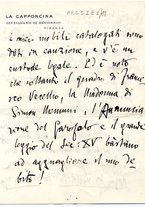 LA CAPPONCINA
SETTIGNANO DI DESIGNANO
FIRENZE
i miei mobili catalogati sono
dati in cauzione, e v'è un
custode legale. Ed è noto
che soltanto il quadro di
Vecellio, la Madonna di
Simon Memmi, l'Annuncia
zione del Garofalo e il grande
leggio del sec: XV bastino
ad agguagliare il mio de
bito!